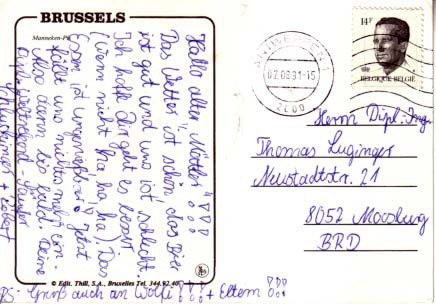 BRUSSELS
Manneken-Pis
Hallo alter Nöttler!!!
Das Wetter ist schön, das Bier
ist gut und uns ist schlecht.
Ich hoffe Dir geht es besser
(wenn nicht ha, ha, ha) Das
Essen ist ungenießbar! Jetzt
fällt uns nichts mehr ein.
Also dann bis bald. Deine
+ Robert
© Edit. Thill, S.A., Bruxelles Tel. 344.92.40
PS: Gruß auch an Wolfi!!! + Eltern!!!
ANTWERPEN 1
02.08.91-15
2000
14F
BELGIQUE BELGIË
Herrn Dipl.-Ing.
Thomas Luginger
Neustadtstr. 21
8052 Moosburg
BRD